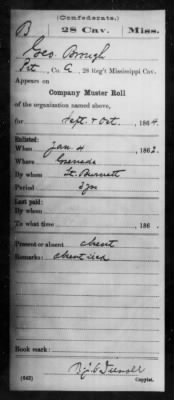 (Confederate.)
B 28 Cav. Miss.
Geo. Brough
Pvt, Co. G, 28 Reg't Mississippi Cav.
Appears on
Company Muster Roll
of the organization named above,
for Sept. & Oct., 1864.
Enlisted:
When Jan 4, 1862.
Where Grenada
By whom Lt. Burnett
Period 3 yrs
Last paid:
By whom
To what time , 186 .
Present or absent absent
Remarks:
Book mark:
(642) Copyist.